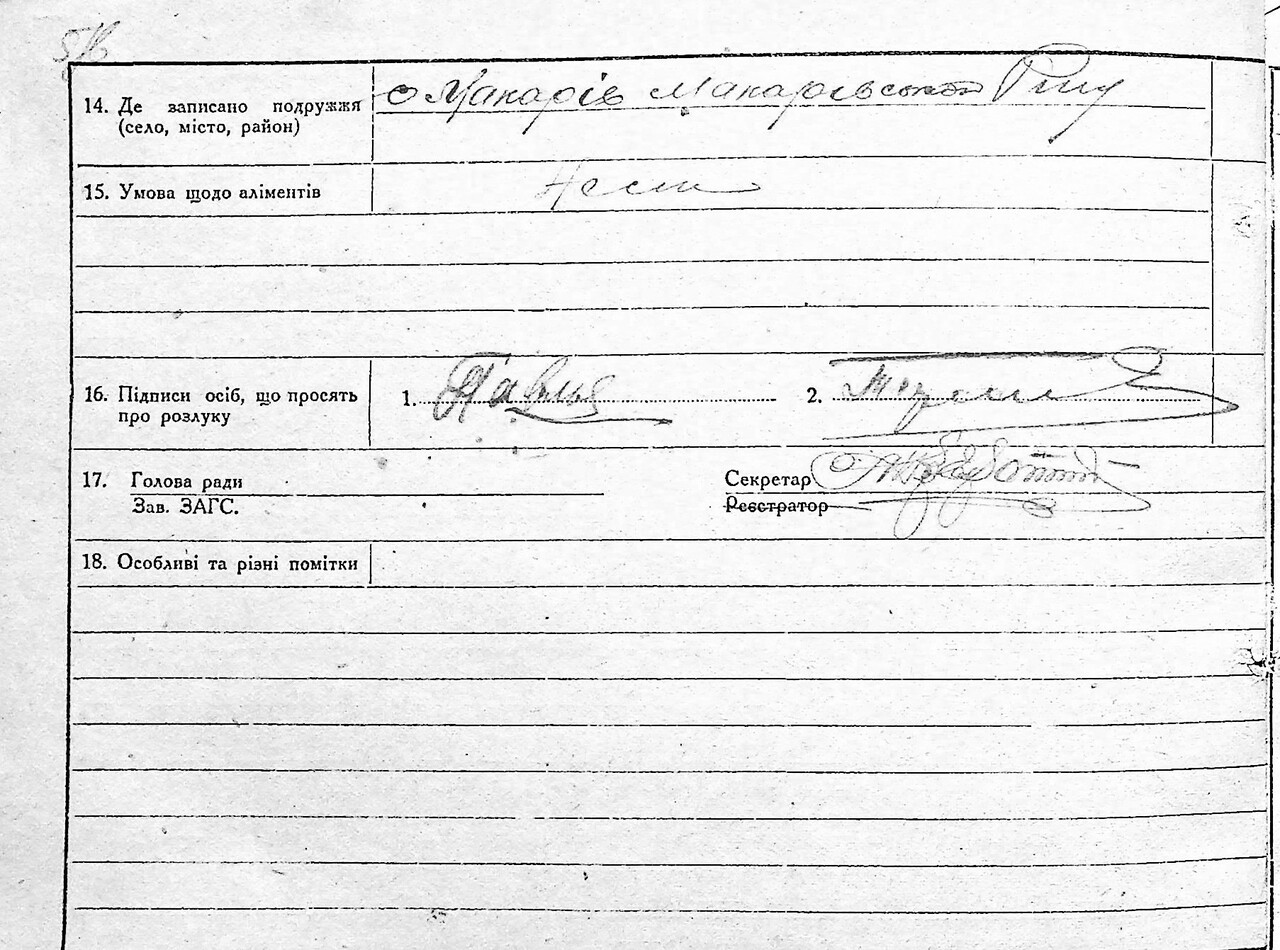 14. Де записано подружжя
(село, місто, район)
с Макарів Макарівського Р-ну
15. Умова щодо аліментів
16. Підписи осіб, що просять
про розлуку
1.
2.
17. Голова ради
Зав. ЗАГС.
Секретар
Реєстратор
18. Особливі та різні помітки